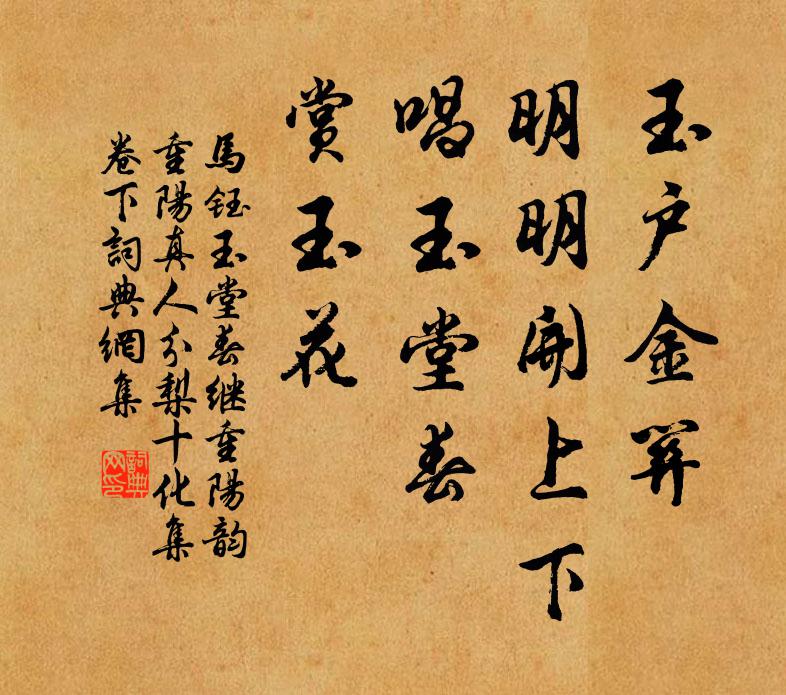 玉户金關
明明開上下
唱玉堂春
賞玉花
馬鈺玉堂春继重陽韵
重陽真人分梨十化集
卷下詞典網集
詞典网印